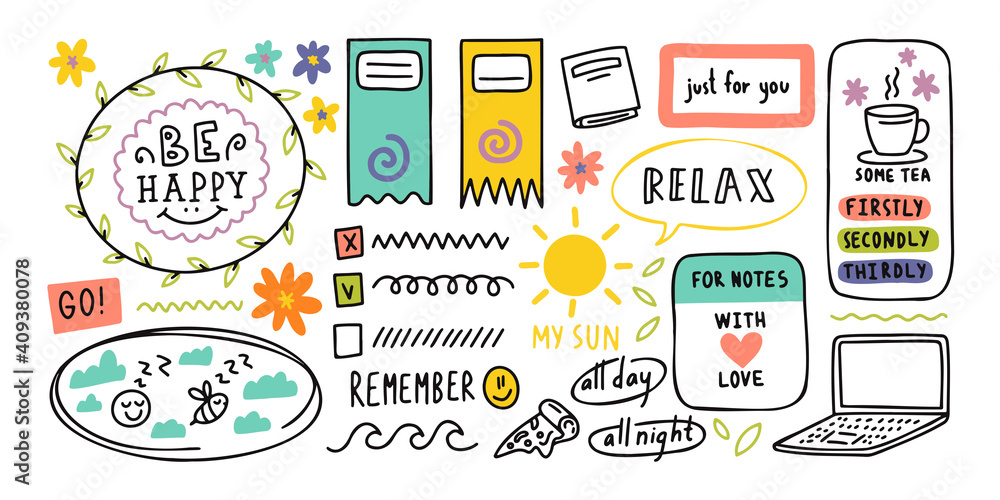 BE
HAPPY
just for you
RELAX
SOME TEA
FIRSTLY
SECONDLY
THIRDLY
GO!
X
V
MY SUN
FOR NOTES
WITH
LOVE
zzz
zzz
REMEMBER
all day
all night
Adobe Stock | #409380078